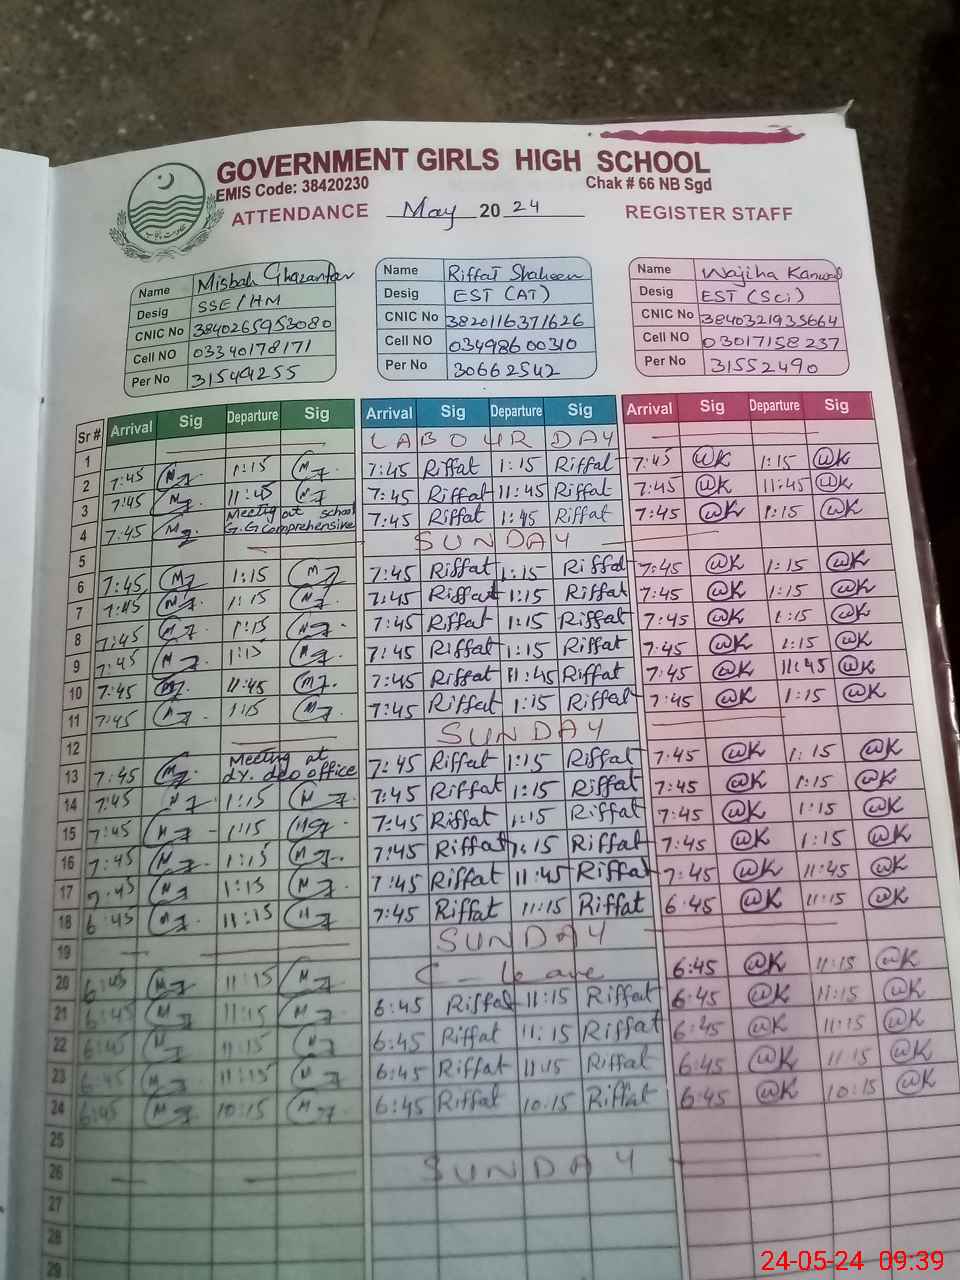 GOVERNMENT GIRLS HIGH SCHOOL
EMIS Code: 38420230 Chak # 66 NB Sgd
ATTENDANCE May 2024 REGISTER STAFF
Name Misbah Ghazanfar Name Riffat Shaheen Name Wajiha Kanwal
Desig SSE/HM Desig EST (AT) Desig EST (Sci)
CNIC No 3840265953080 CNIC No 3820116371626 CNIC No 3840321935664
Cell NO 03340178171 Cell NO 03498600310 Cell NO 03017158237
Per No 31549255 Per No 30662542 Per No 31552490
Sr # Arrival Sig Departure Sig Arrival Sig Departure Sig Arrival Sig Departure Sig
1 LABOUR DAY
2 7:45 1:15 7:45 Riffat 1:15 Riffat 7:45 @K 1:15 @K
3 7:45 11:45 7:45 Riffat 11:45 Riffat 7:45 @K 11:45 @K
4 7:45 Meeting at school G.G Comprehensive 7:45 Riffat 1:45 Riffat 7:45 @K 1:15 @K
5 SUNDAY
6 7:45 1:15 7:45 Riffat 1:15 Riffat 7:45 @K 1:15 @K
7 7:45 1:15 7:45 Riffat 1:15 Riffat 7:45 @K 1:15 @K
8 7:45 1:15 7:45 Riffat 1:15 Riffat 7:45 @K 1:15 @K
9 7:45 1:15 7:45 Riffat 1:15 Riffat 7:45 @K 1:15 @K
10 7:45 11:45 7:45 Riffat 11:45 Riffat 7:45 @K 11:45 @K
11 7:45 1:15 7:45 Riffat 1:15 Riffat 7:45 @K 1:15 @K
12 SUNDAY
13 7:45 Meeting at dy. deo office 7:45 Riffat 1:15 Riffat 7:45 @K 1:15 @K
14 7:45 1:15 7:45 Riffat 1:15 Riffat 7:45 @K 1:15 @K
15 7:45 1:15 7:45 Riffat 1:15 Riffat 7:45 @K 1:15 @K
16 7:45 1:15 7:45 Riffat 1:15 Riffat 7:45 @K 1:15 @K
17 7:45 1:15 7:45 Riffat 11:45 Riffat 7:45 @K 11:45 @K
18 6:45 11:15 7:45 Riffat 11:15 Riffat 6:45 @K 11:15 @K
19 SUNDAY
20 6:45 11:15 C-leave 6:45 @K 11:15 @K
21 6:45 11:15 6:45 Riffat 11:15 Riffat 6:45 @K 11:15 @K
22 6:45 11:15 6:45 Riffat 11:15 Riffat 6:45 @K 11:15 @K
23 6:45 11:15 6:45 Riffat 11:15 Riffat 6:45 @K 11:15 @K
24 6:45 10:15 6:45 Riffat 10:15 Riffat 6:45 @K 10:15 @K
25
26 SUNDAY
27
28
29
24-05-24 09:39